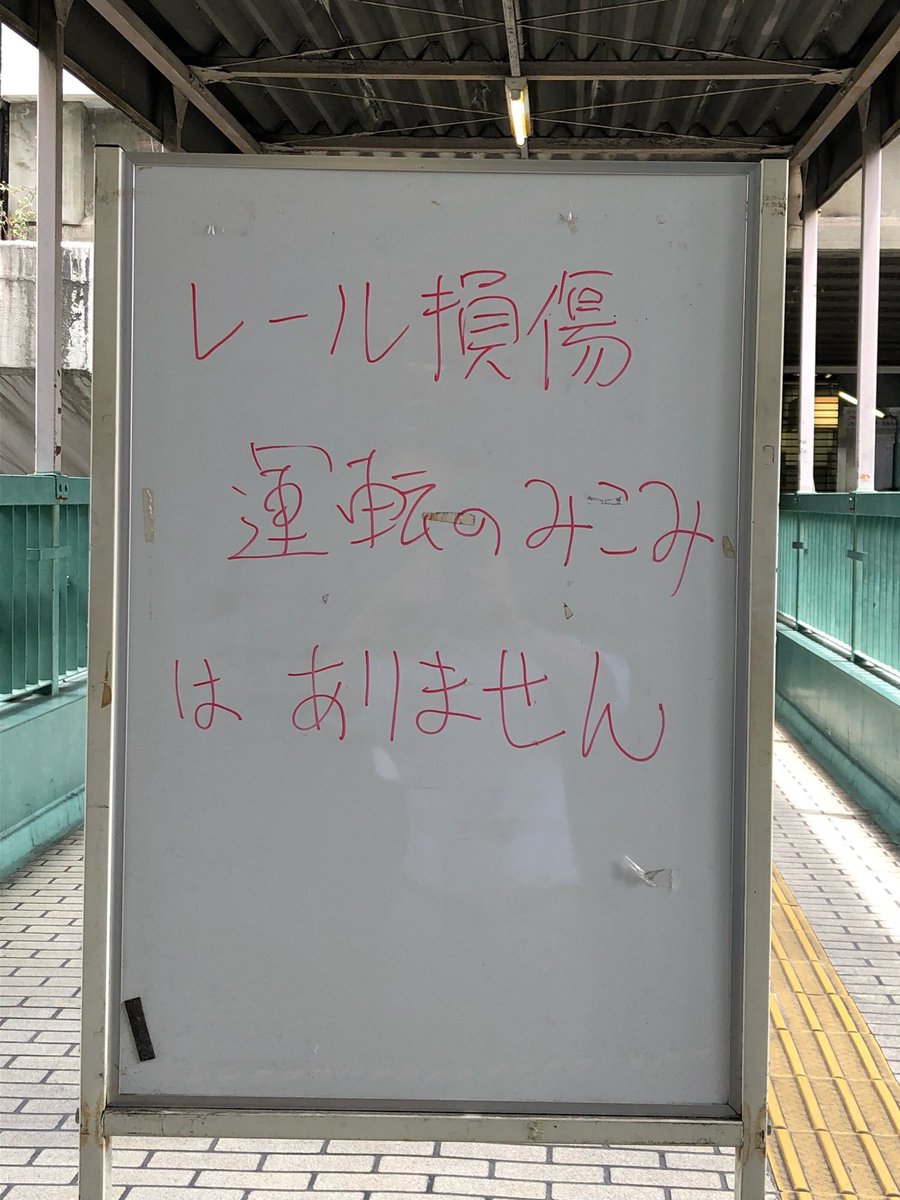 レール損傷
運転のみこみ
はありません